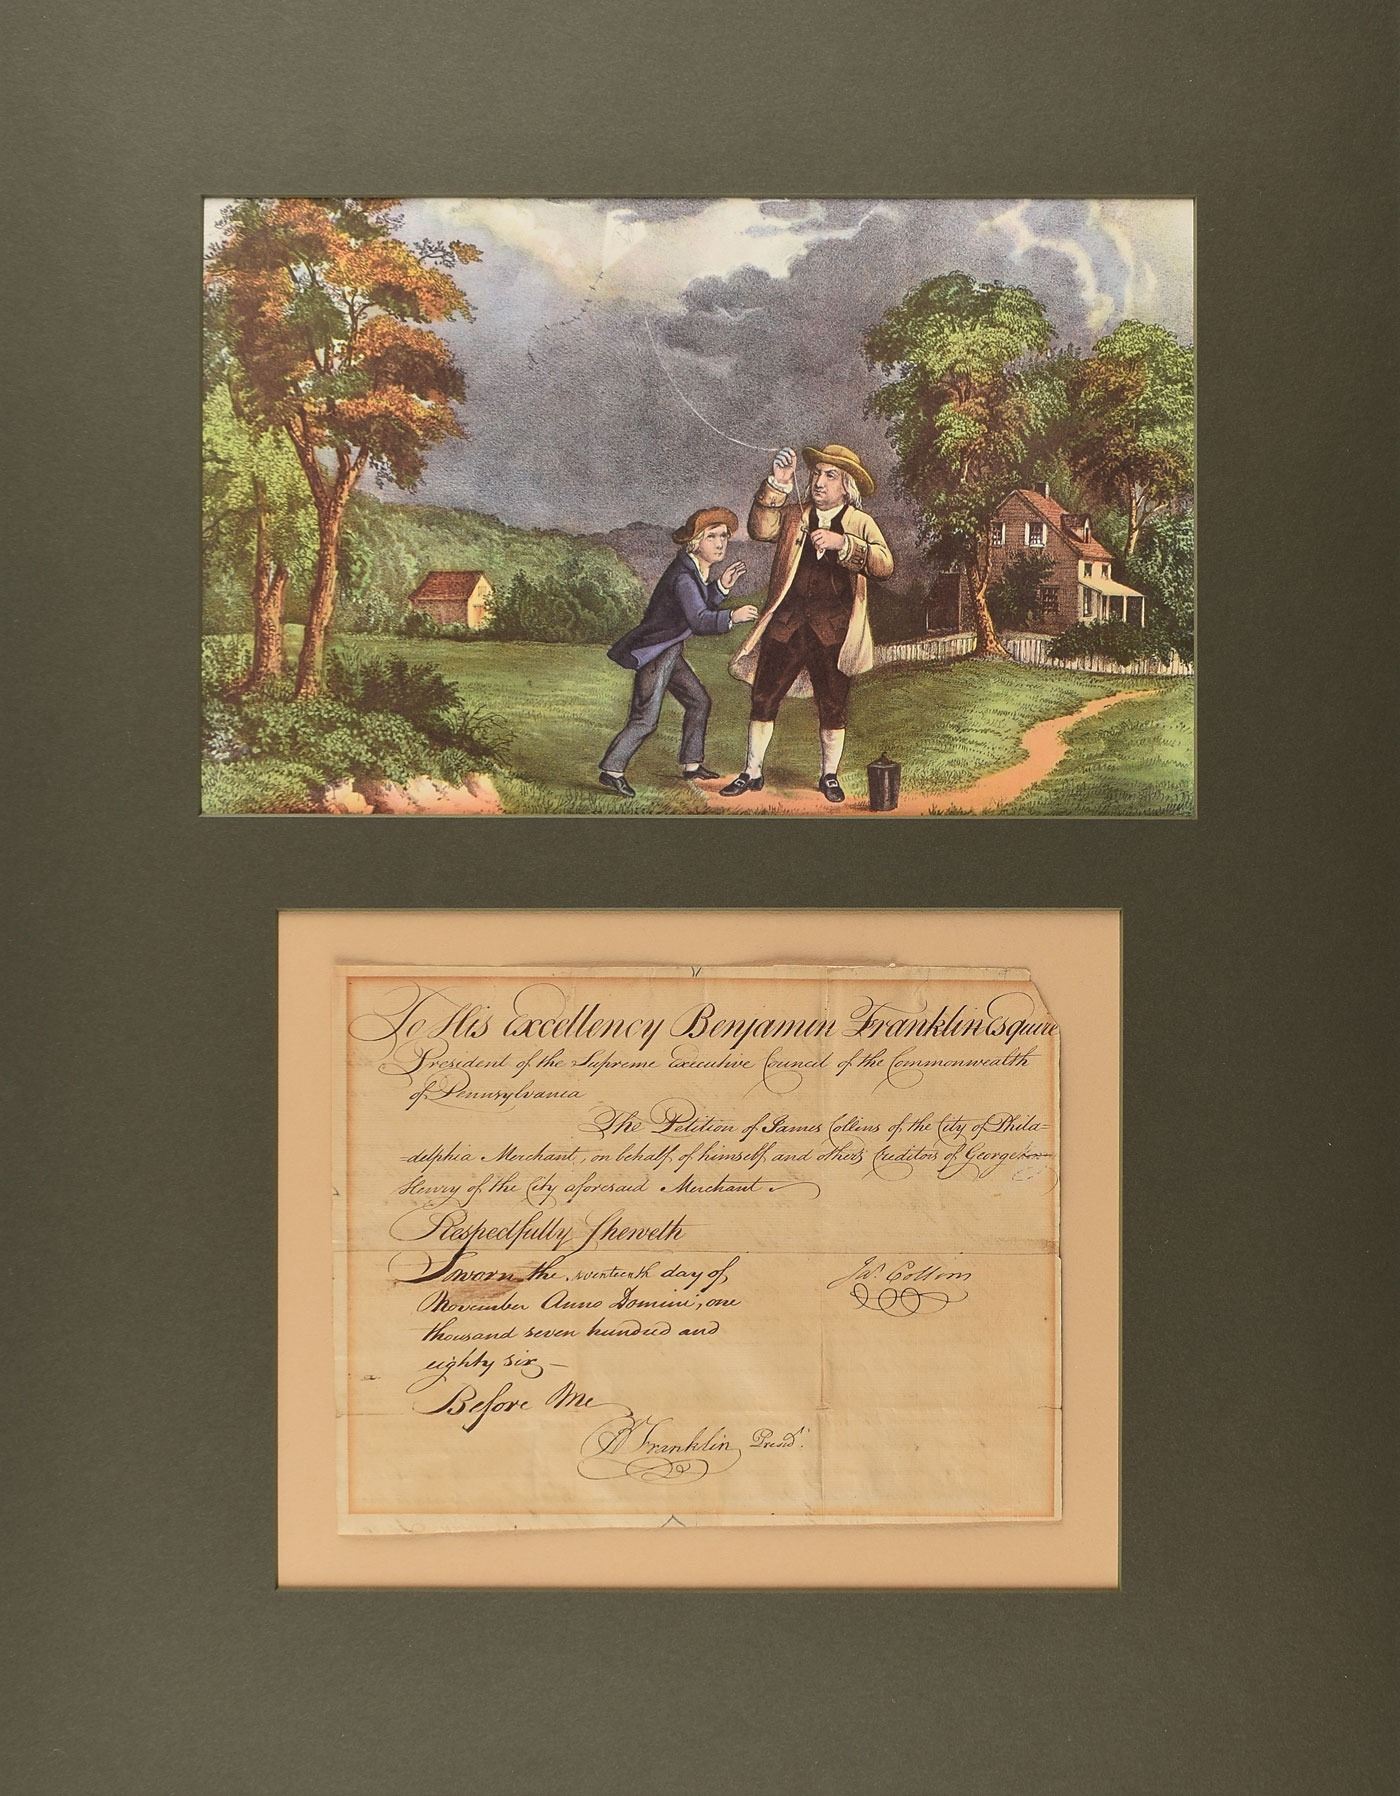 To His Excellency Benjamin Franklin Esquire
President of the Supreme Executive Council of the Commonwealth
of Pennsylvania
The Petition of James Collins of the City of Phila=
=delphia Merchant, on behalf of himself and others Creditors of George
Henry of the City aforesaid Merchant
Respectfully Sheweth
Sworn the seventeenth day of
November Anno Domini, one
thousand seven hundred and
eighty six
Jas. Collins
Before Me
B Franklin Presidt.